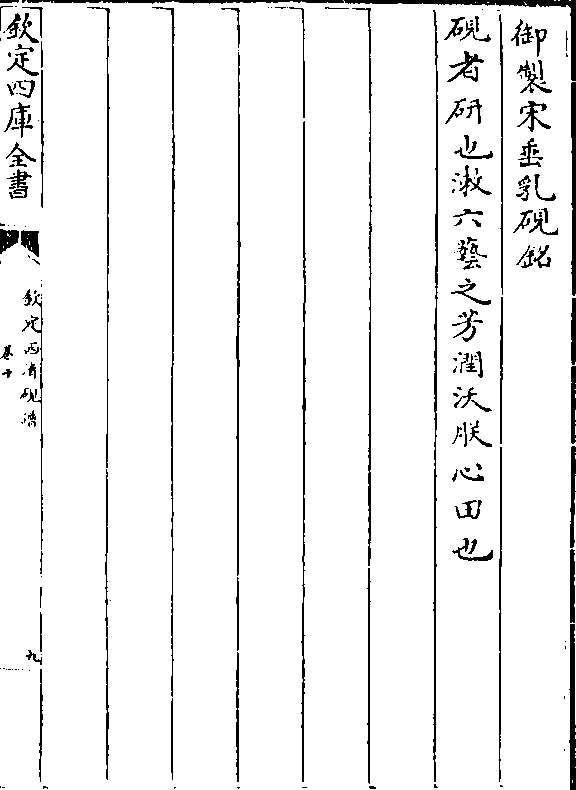 御製宋垂乳硯銘
硯者研也漱六藝之芳潤沃朕心田也
欽定四庫全書
欽定西清硯譜
卷十
九